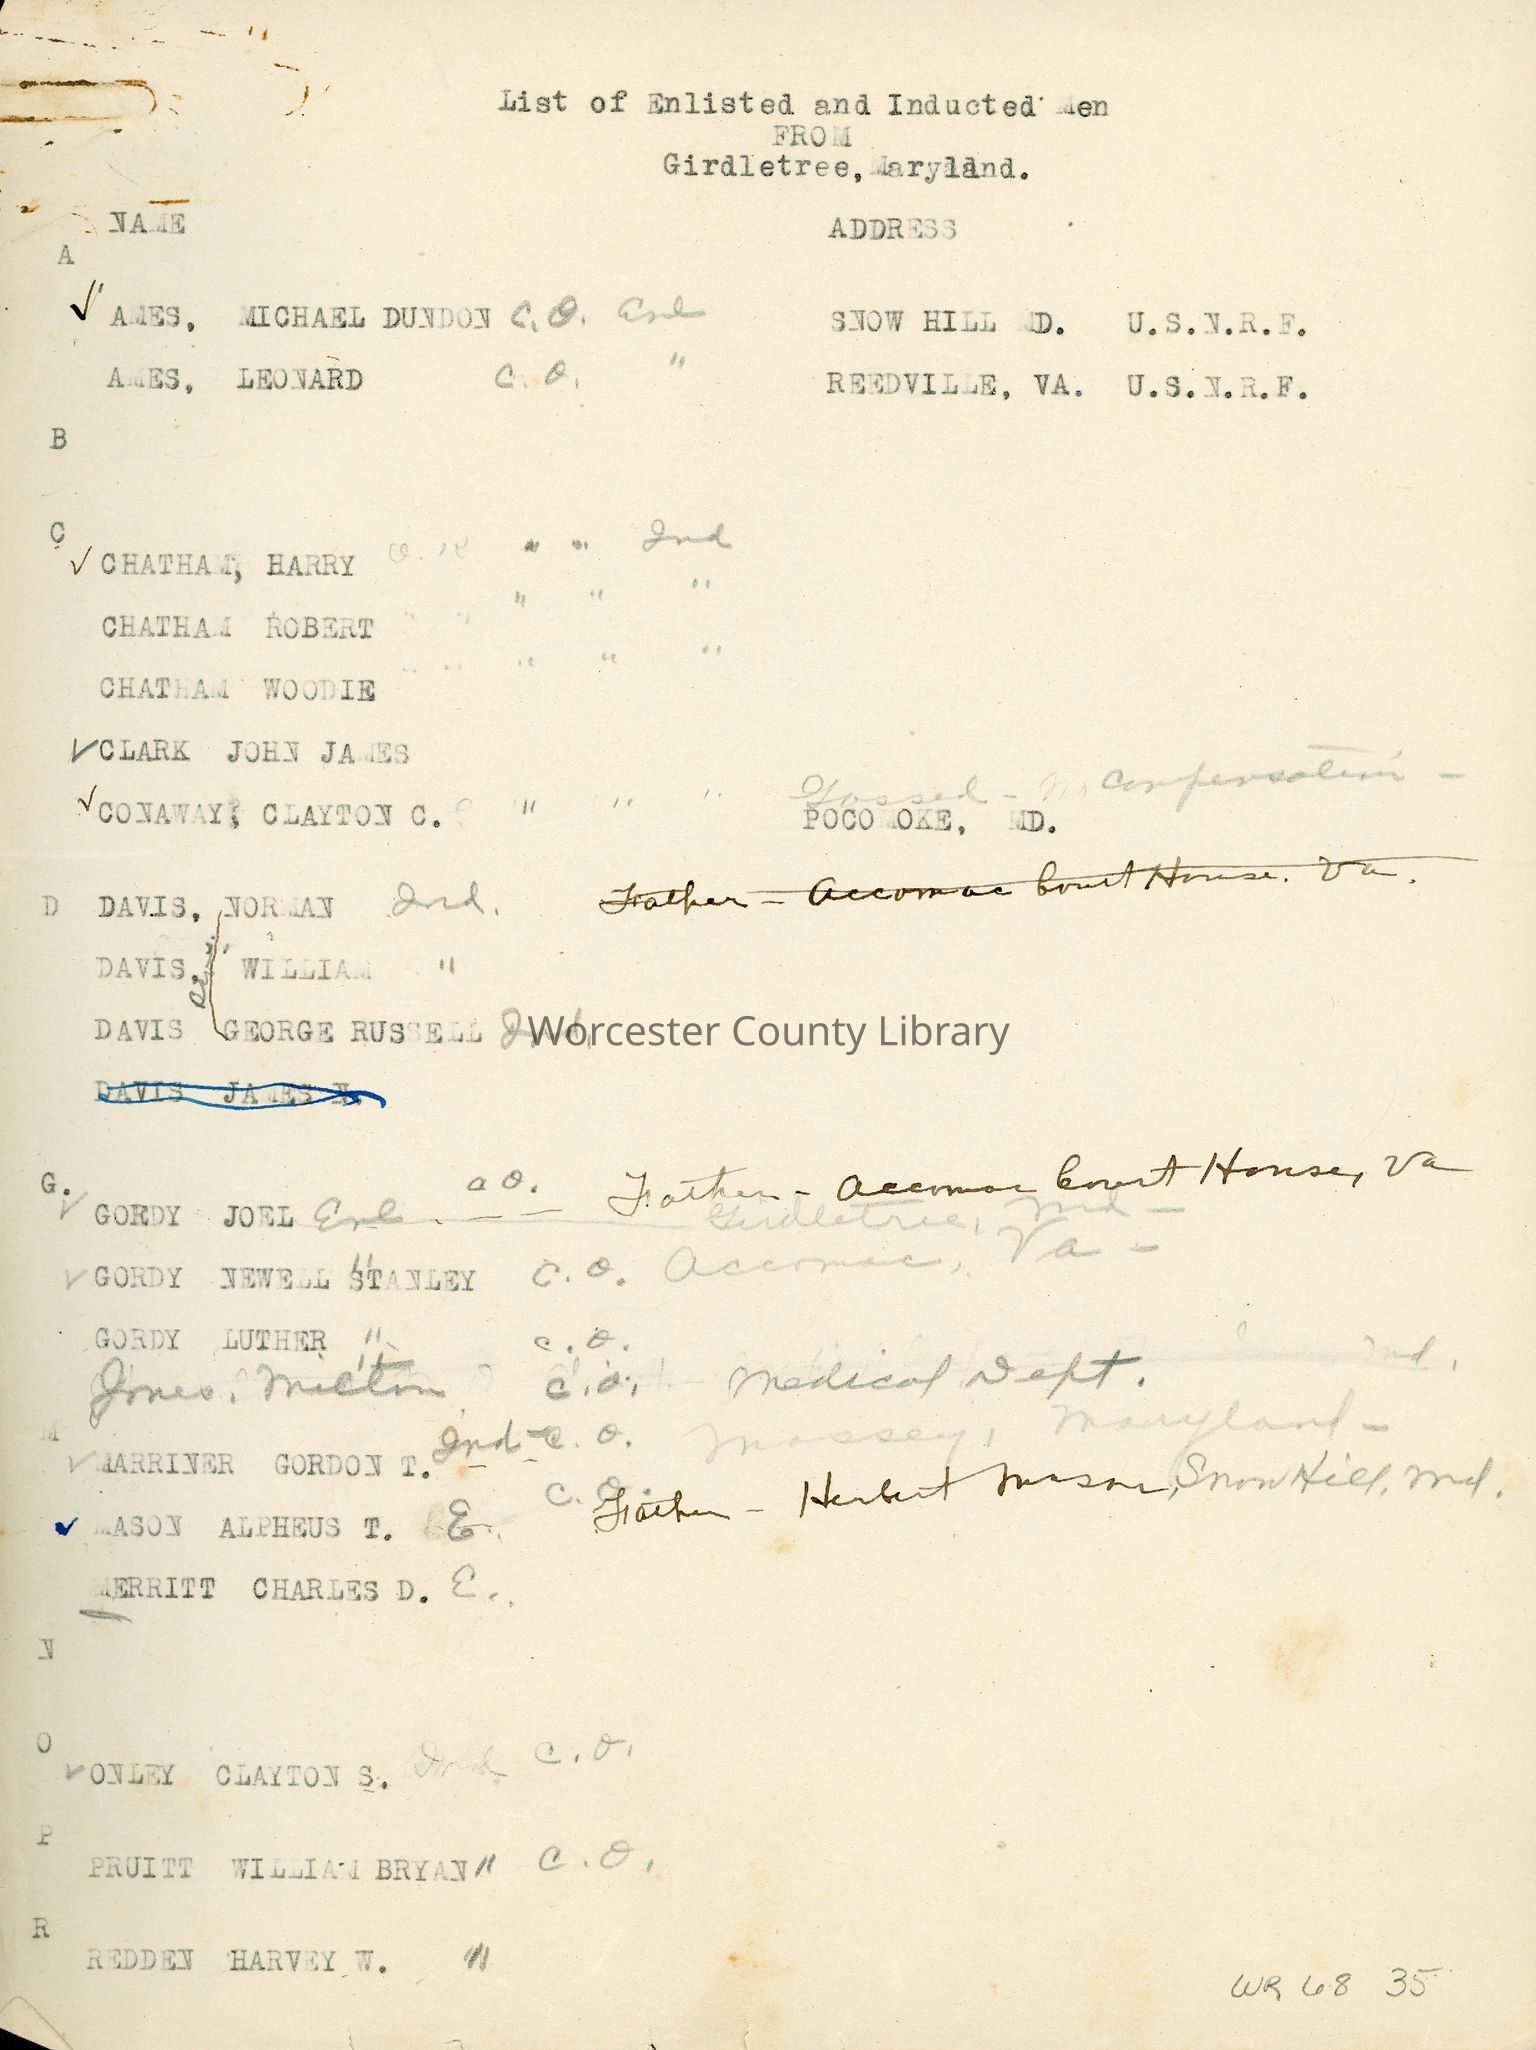 List of Enlisted and Inducted Men
FROM
Girdletree, Maryland.
NAME ADDRESS
A
✓ AMES, MICHAEL DUNDON C.O. Enl SNOW HILL MD. U.S.N.R.F.
AMES, LEONARD C.O. " REEDVILLE, VA. U.S.N.R.F.
B
C
✓ CHATHAM, HARRY " " Ind
CHATHAM ROBERT " " "
CHATHAM WOODIE " " " " "
✓ CLARK JOHN JAMES
Gassed - compensation -
✓ CONAWAY, CLAYTON C. " " " POCOMOKE, MD.
Father - Accomac Court House. Va.
D DAVIS, NORMAN Ind.
DAVIS, WILLIAM "
DAVIS GEORGE RUSSELL Ind.
Worcester County Library
DAVIS JAMES N.
G. a O. Father - Accomac Court House, Va
✓ GORDY JOEL Enl. Girdletree, Md -
✓ GORDY NEWELL STANLEY " C.O. Accomac, Va -
GORDY LUTHER " C.O.
Md.
Jones, Milton " C.O. Medical Dept.
M
✓ MARRINER GORDON T. Ind - C.O. Massey, Maryland -
C.O. Father - Herbert Mason, Snow Hill, Md.
✓ MASON ALPHEUS T. E.
MERRITT CHARLES D. E.
N
O
✓ ONLEY CLAYTON S. Ind. C.O.
P
PRUITT WILLIAM BRYAN " C.O.
R
REDDEN HARVEY W. "
WR 68 35